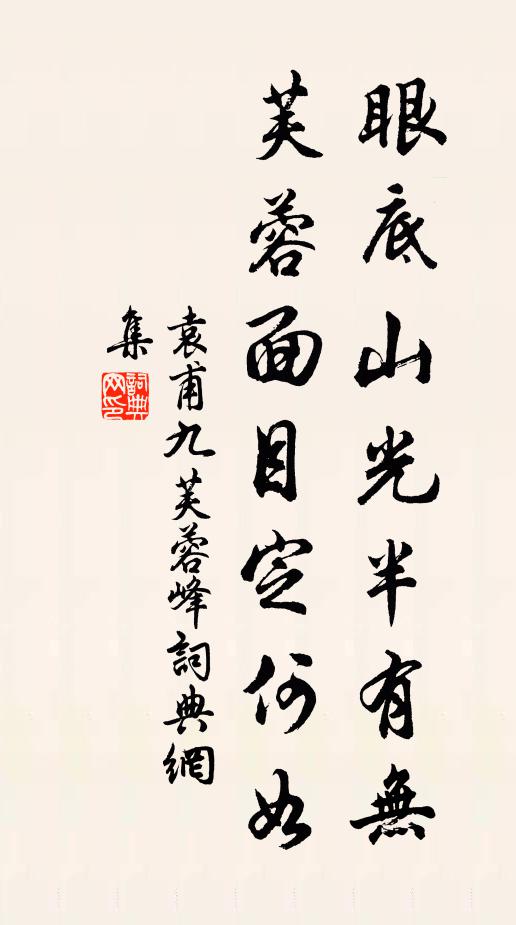 眼底山光半有無
芙蓉面目定何如
袁甫九芙蓉峰詞典網
集
詞典
网印